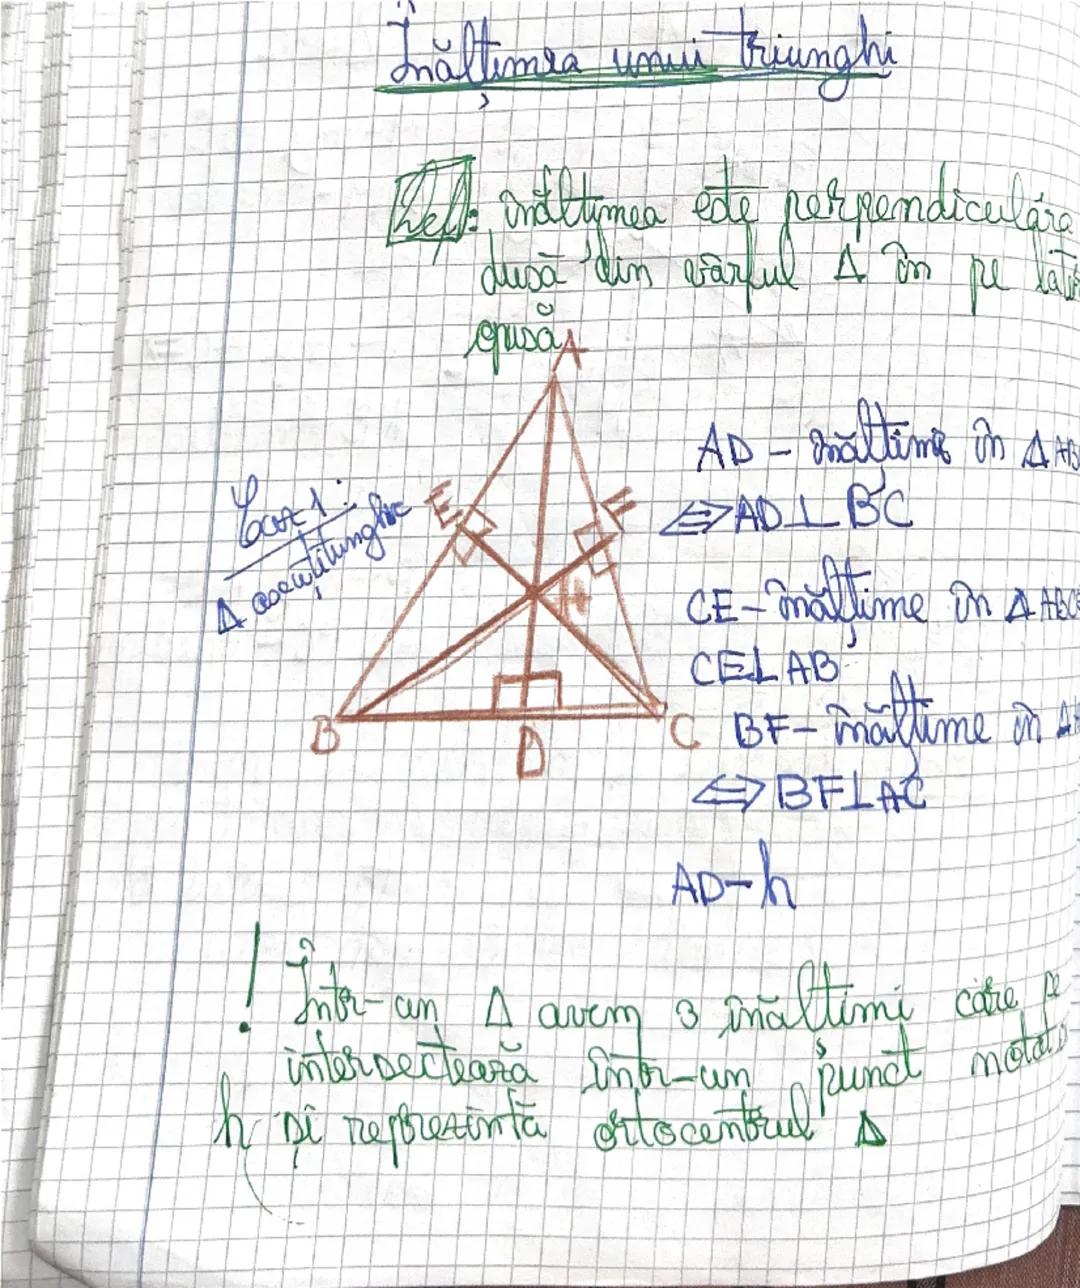 Înălțimea unui triunghi
Def: înălțimea este perpendiculara
dusă din vârful Δ în pe
opusă
A
AD - înălțime în Δ AB
Caz 1:
E
F
⇔ AD ⊥ BC
Δ ascuțitunghic
H
CE - înălțime în Δ ABC
CE ⊥ AB
B
D
C
BF - înălțime în Δ
⇔ BF ⊥ AC
AD - h
! Într-un Δ avem 3 înălțimi care se
intersectează într-un punct notat
h și reprezintă ortocentrul Δ